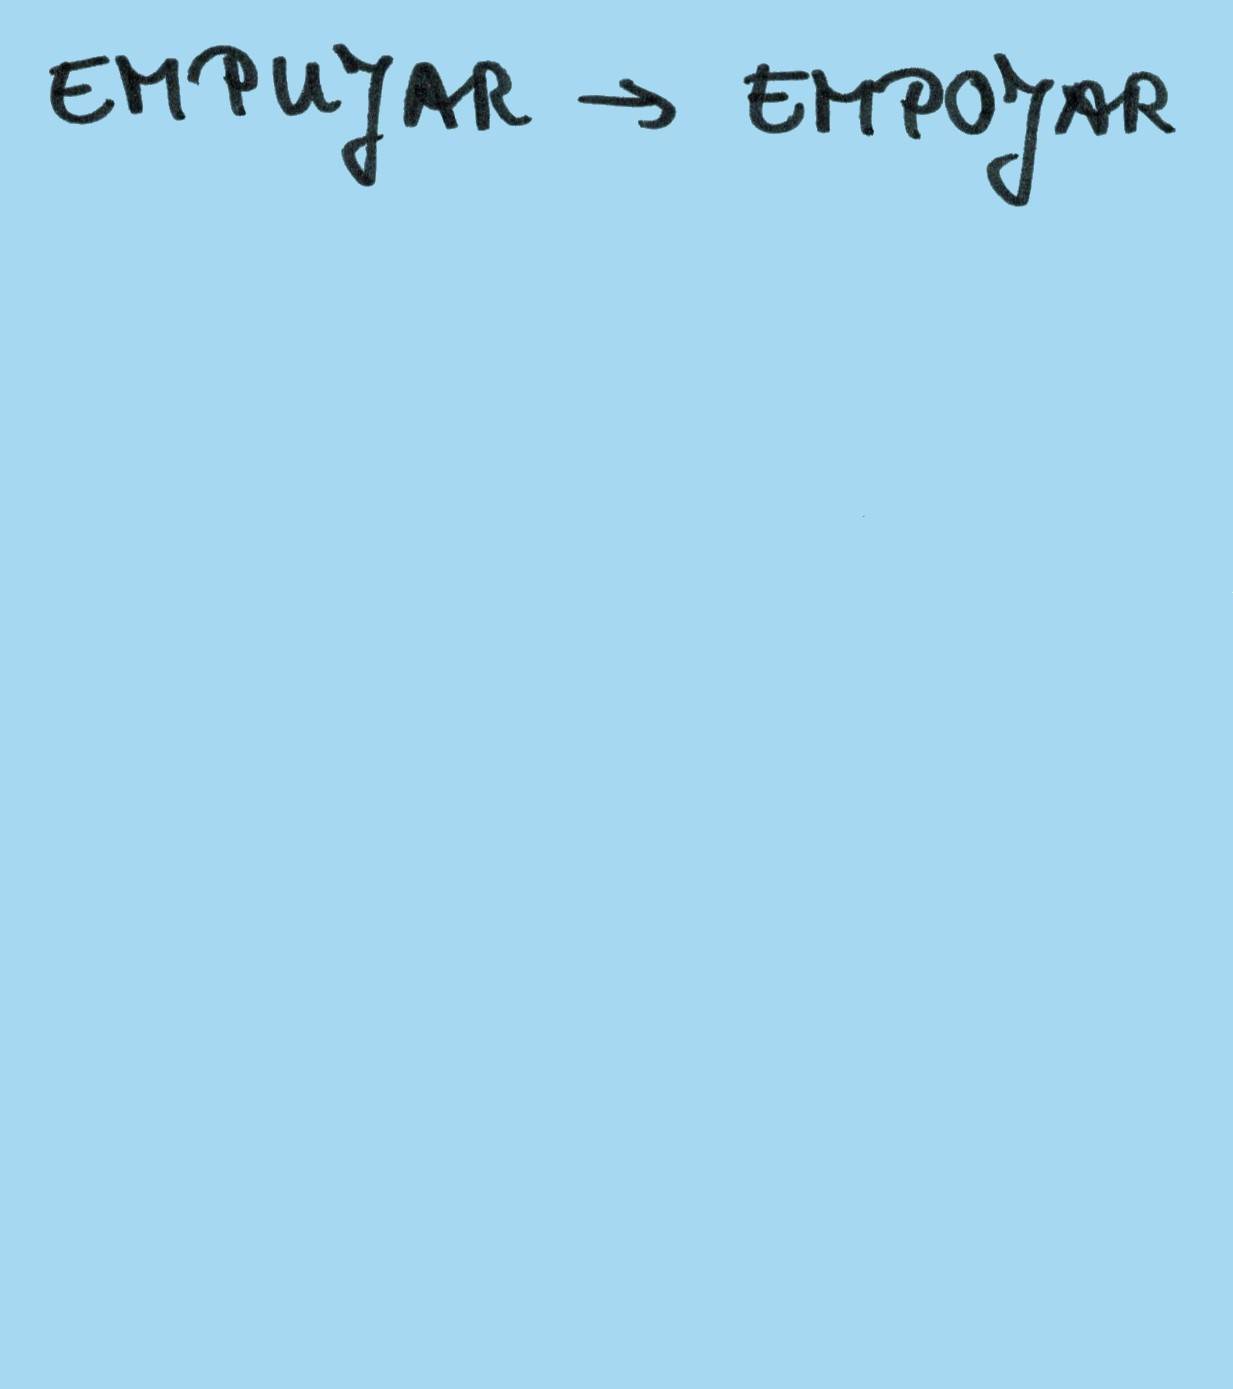 EMPUJAR → EMPOJAR